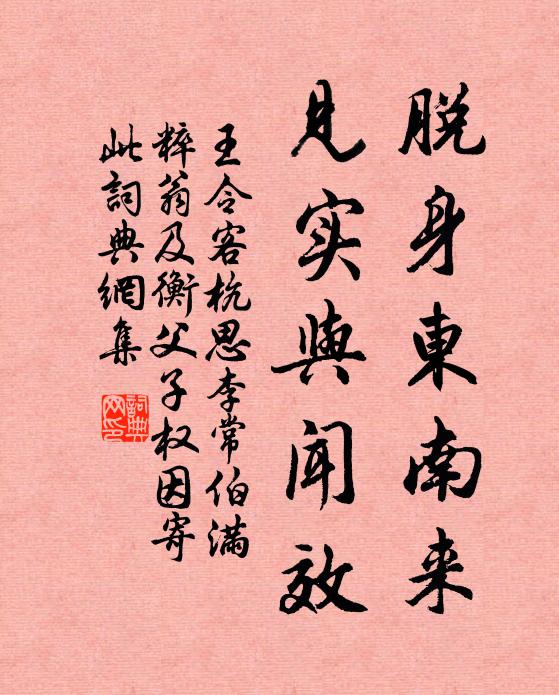 脱身東南来
見实與闻效
王令客杭思李常伯滿
粹翁及衡父子权因寄
此詞典網集
詞典网印